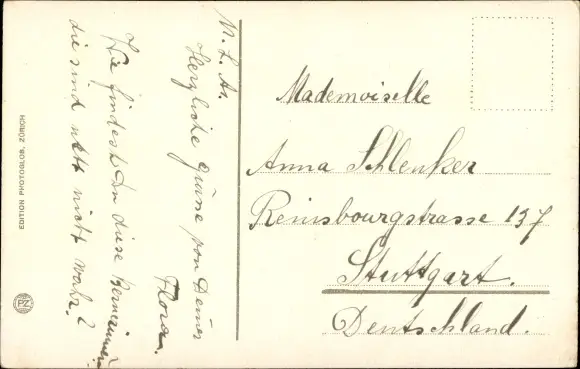 M. L. A.
Herzliche Grüsse von Deiner
Flora.
Wie findest Du diese Bernerinnen
die sind nett nicht wahr?
Mademoiselle
Anna Schlenker
Reinsbourgstrasse 137
Stuttgart.
Deutschland.
EDITION PHOTOGLOB, ZÜRICH
PZ